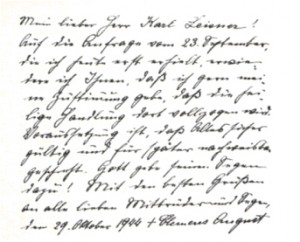 Mein lieber Herr Karl Leisner!
Auf die Anfrage vom 23. September,
die ich heute erst erhielt, erwie-
dere ich Ihnen, daß ich gern mei-
ne Zustimmung gebe, daß die hei-
lige Handlung dort vollzogen wird.
Voraussetzung ist, daß Alles sicher
gültig und für später nachweisbar
geschieht. Gott gebe seinen Segen
dazu! Mit den besten Grüßen
an alle lieben Mitbrüder und Segen,
den 29. Oktober 1944 + Clemens August